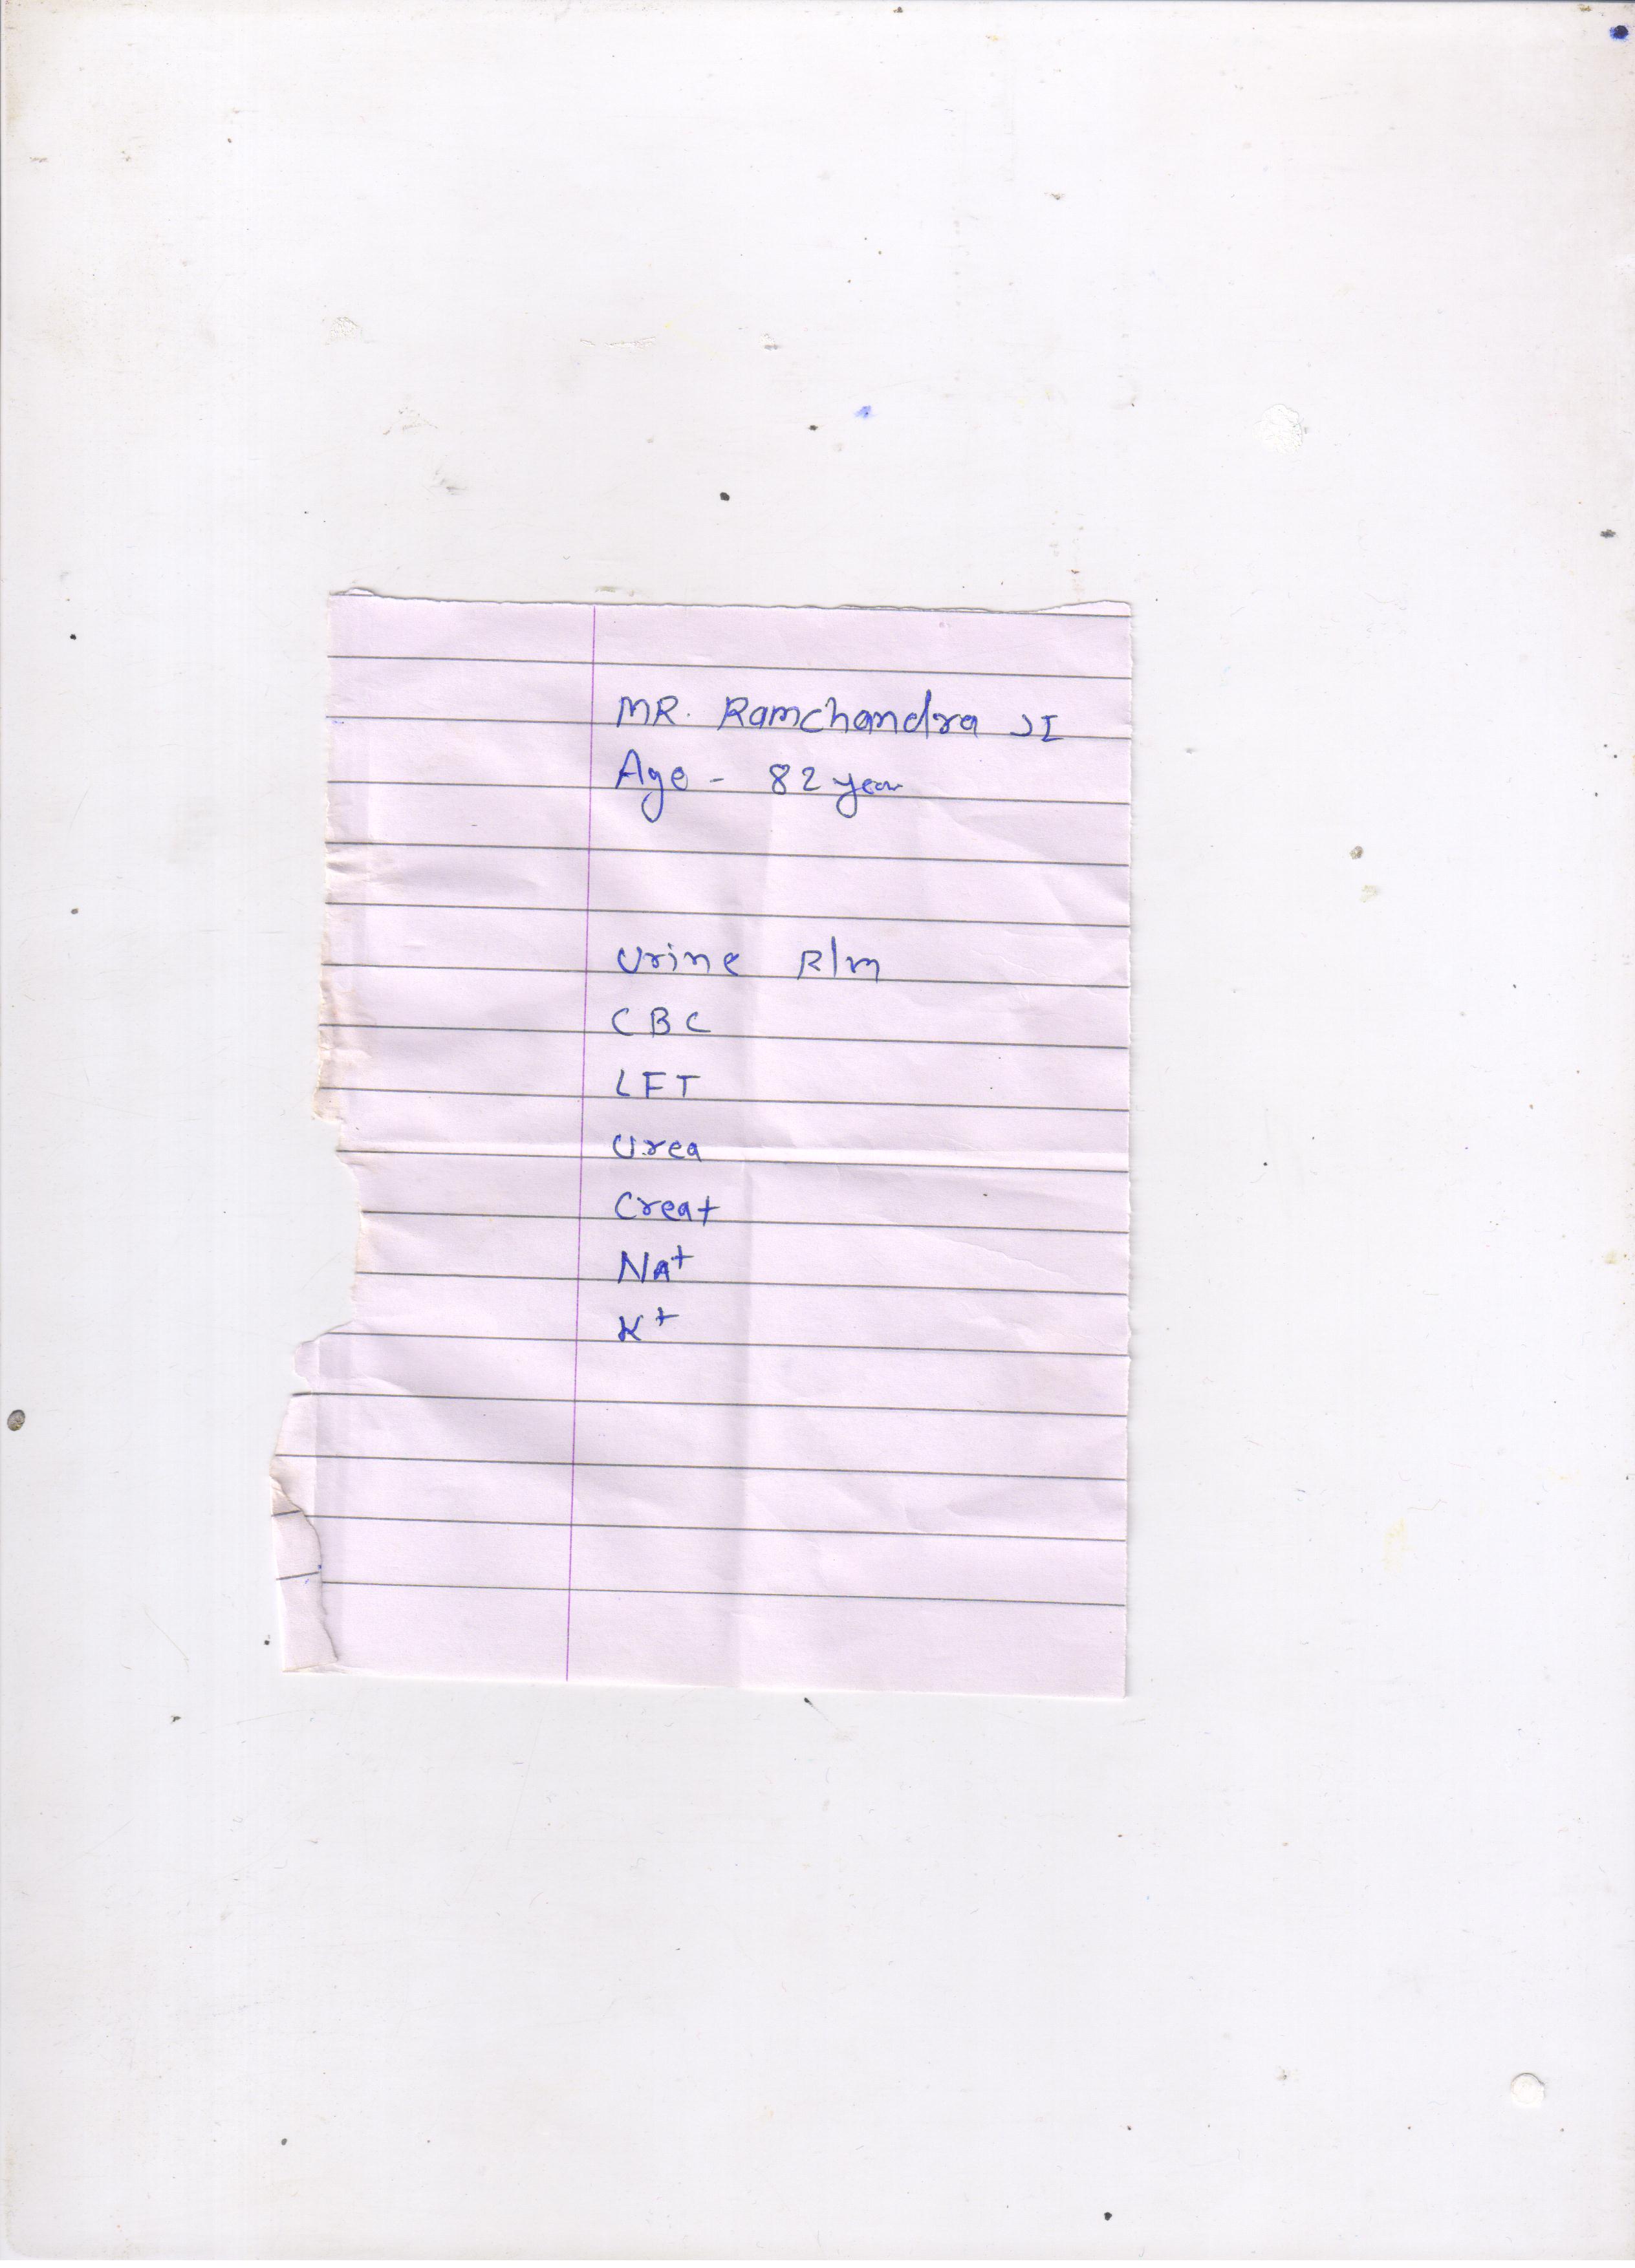 MR. Ramchandra JI
Age - 82 year
Urine R/m
CBC
LFT
Urea
Creat
Na+
K+